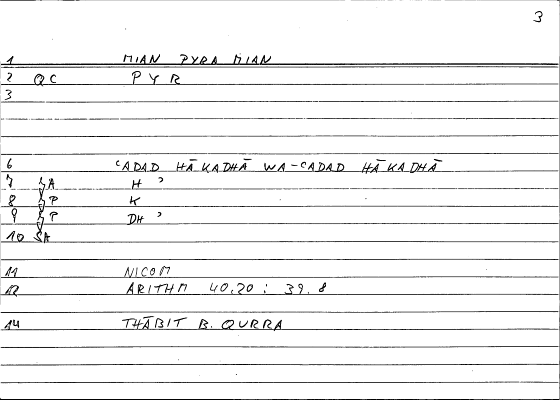 3
1 MIAN PYRA MIAN
2 QC PYR
3
6 ʿADAD HĀKADHĀ WA-ʿADAD HĀKADHĀ
7 A H ʾ
8 P K
9 P DH ʾ
10 A
11 NICOM
12 ARITHM 40.20 : 39.8
14 THĀBIT B. QURRA